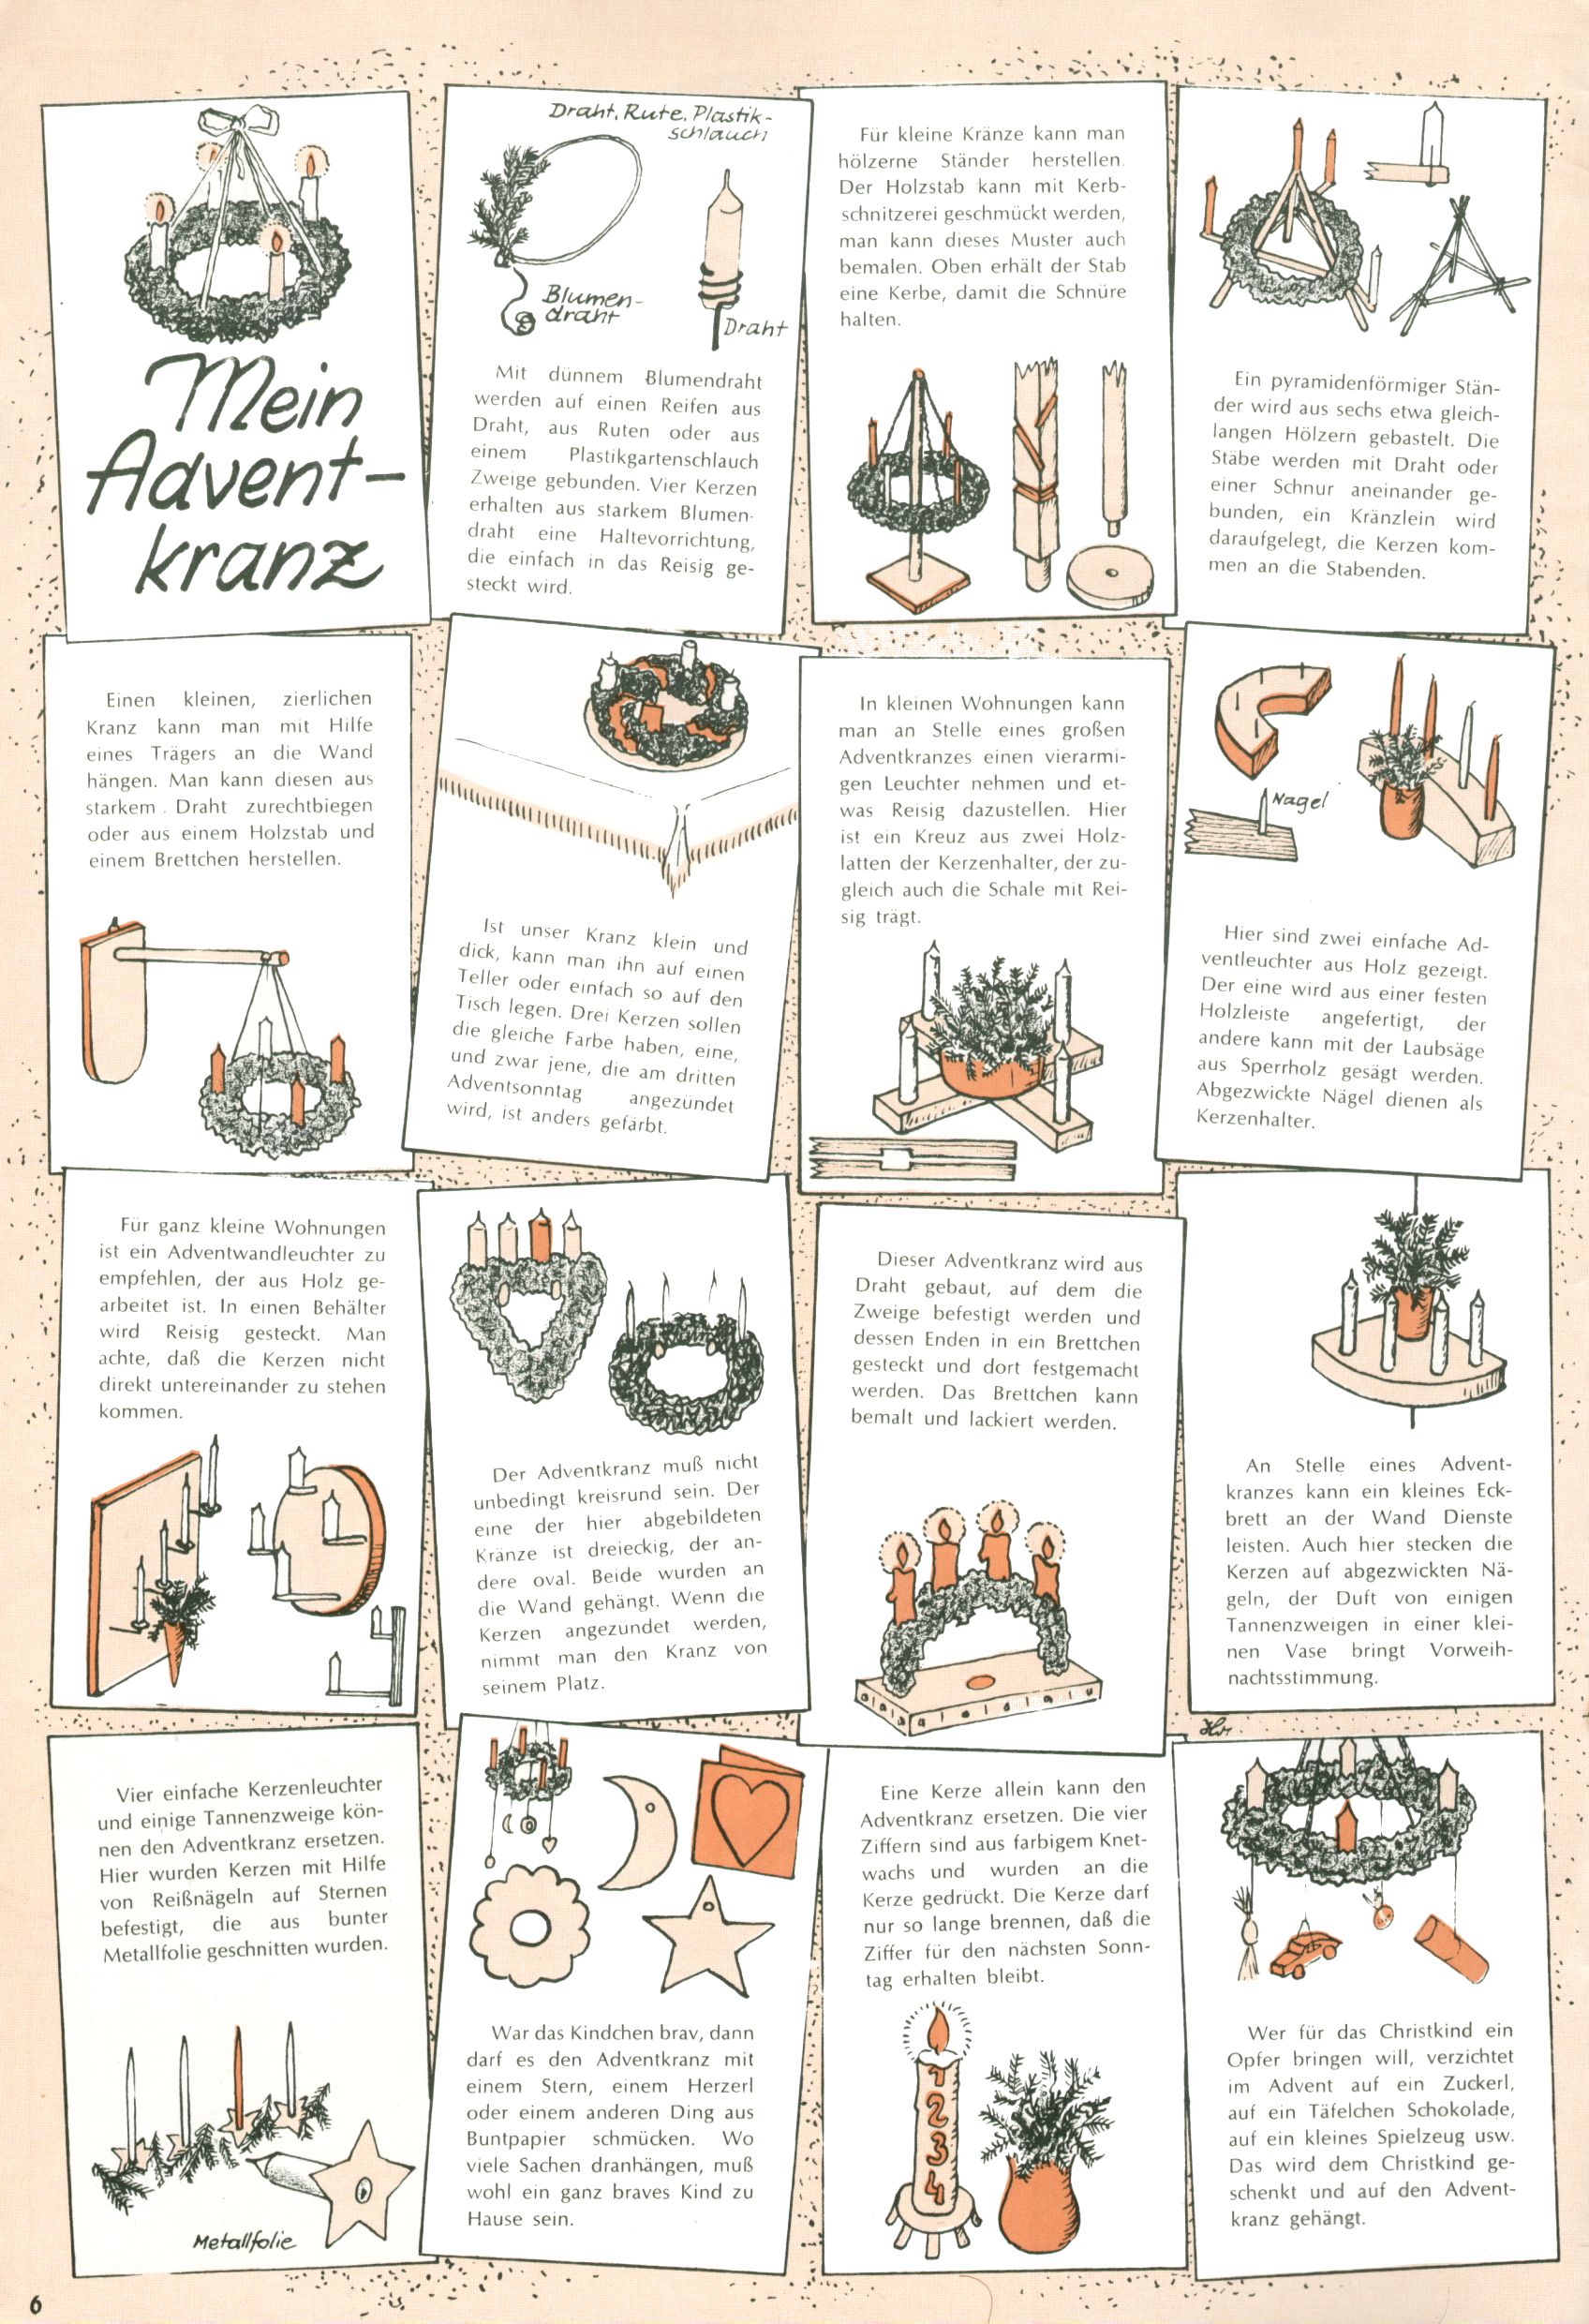 Mein
Advent-
kranz
Draht, Rute, Plastik-
schlauch
Blumen-
draht
Draht
Mit dünnem Blumendraht
werden auf einen Reifen aus
Draht, aus Ruten oder aus
einem Plastikgartenschlauch
Zweige gebunden. Vier Kerzen
erhalten aus starkem Blumen-
draht eine Haltevorrichtung,
die einfach in das Reisig ge-
steckt wird.
Für kleine Kränze kann man
hölzerne Ständer herstellen.
Der Holzstab kann mit Kerb-
schnitzerei geschmückt werden,
man kann dieses Muster auch
bemalen. Oben erhält der Stab
eine Kerbe, damit die Schnüre
halten.
Ein pyramidenförmiger Stän-
der wird aus sechs etwa gleich-
langen Hölzern gebastelt. Die
Stäbe werden mit Draht oder
einer Schnur aneinander ge-
bunden, ein Kränzlein wird
daraufgelegt, die Kerzen kom-
men an die Stabenden.
Einen kleinen, zierlichen
Kranz kann man mit Hilfe
eines Trägers an die Wand
hängen. Man kann diesen aus
starkem Draht zurechtbiegen
oder aus einem Holzstab und
einem Brettchen herstellen.
Ist unser Kranz klein und
dick, kann man ihn auf einen
Teller oder einfach so auf den
Tisch legen. Drei Kerzen sollen
die gleiche Farbe haben, eine,
und zwar jene, die am dritten
Adventsonntag angezündet
wird, ist anders gefärbt.
In kleinen Wohnungen kann
man an Stelle eines großen
Adventkranzes einen vierarmi-
gen Leuchter nehmen und et-
was Reisig dazustellen. Hier
ist ein Kreuz aus zwei Holz-
latten der Kerzenhalter, der zu-
gleich auch die Schale mit Rei-
sig trägt.
Nagel
Hier sind zwei einfache Ad-
ventleuchter aus Holz gezeigt.
Der eine wird aus einer festen
Holzleiste angefertigt, der
andere kann mit der Laubsäge
aus Sperrholz gesägt werden.
Abgezwickte Nägel dienen als
Kerzenhalter.
Für ganz kleine Wohnungen
ist ein Adventwandleuchter zu
empfehlen, der aus Holz ge-
arbeitet ist. In einen Behälter
wird Reisig gesteckt. Man
achte, daß die Kerzen nicht
direkt untereinander zu stehen
kommen.
Der Adventkranz muß nicht
unbedingt kreisrund sein. Der
eine der hier abgebildeten
Kränze ist dreieckig, der an-
dere oval. Beide wurden an
die Wand gehängt. Wenn die
Kerzen angezündet werden,
nimmt man den Kranz von
seinem Platz.
Dieser Adventkranz wird aus
Draht gebaut, auf dem die
Zweige befestigt werden und
dessen Enden in ein Brettchen
gesteckt und dort festgemacht
werden. Das Brettchen kann
bemalt und lackiert werden.
An Stelle eines Advent-
kranzes kann ein kleines Eck-
brett an der Wand Dienste
leisten. Auch hier stecken die
Kerzen auf abgezwickten Nä-
geln, der Duft von einigen
Tannenzweigen in einer klei-
nen Vase bringt Vorweih-
nachtsstimmung.
Vier einfache Kerzenleuchter
und einige Tannenzweige kön-
nen den Adventkranz ersetzen.
Hier wurden Kerzen mit Hilfe
von Reißnägeln auf Sternen
befestigt, die aus bunter
Metallfolie geschnitten wurden.
Metallfolie
War das Kindchen brav, dann
darf es den Adventkranz mit
einem Stern, einem Herzerl
oder einem anderen Ding aus
Buntpapier schmücken. Wo
viele Sachen dranhängen, muß
wohl ein ganz braves Kind zu
Hause sein.
Eine Kerze allein kann den
Adventkranz ersetzen. Die vier
Ziffern sind aus farbigem Knet-
wachs und wurden an die
Kerze gedrückt. Die Kerze darf
nur so lange brennen, daß die
Ziffer für den nächsten Sonn-
tag erhalten bleibt.
1
2
3
4
Wer für das Christkind ein
Opfer bringen will, verzichtet
im Advent auf ein Zuckerl,
auf ein Täfelchen Schokolade,
auf ein kleines Spielzeug usw.
Das wird dem Christkind ge-
schenkt und auf den Advent-
kranz gehängt.
6